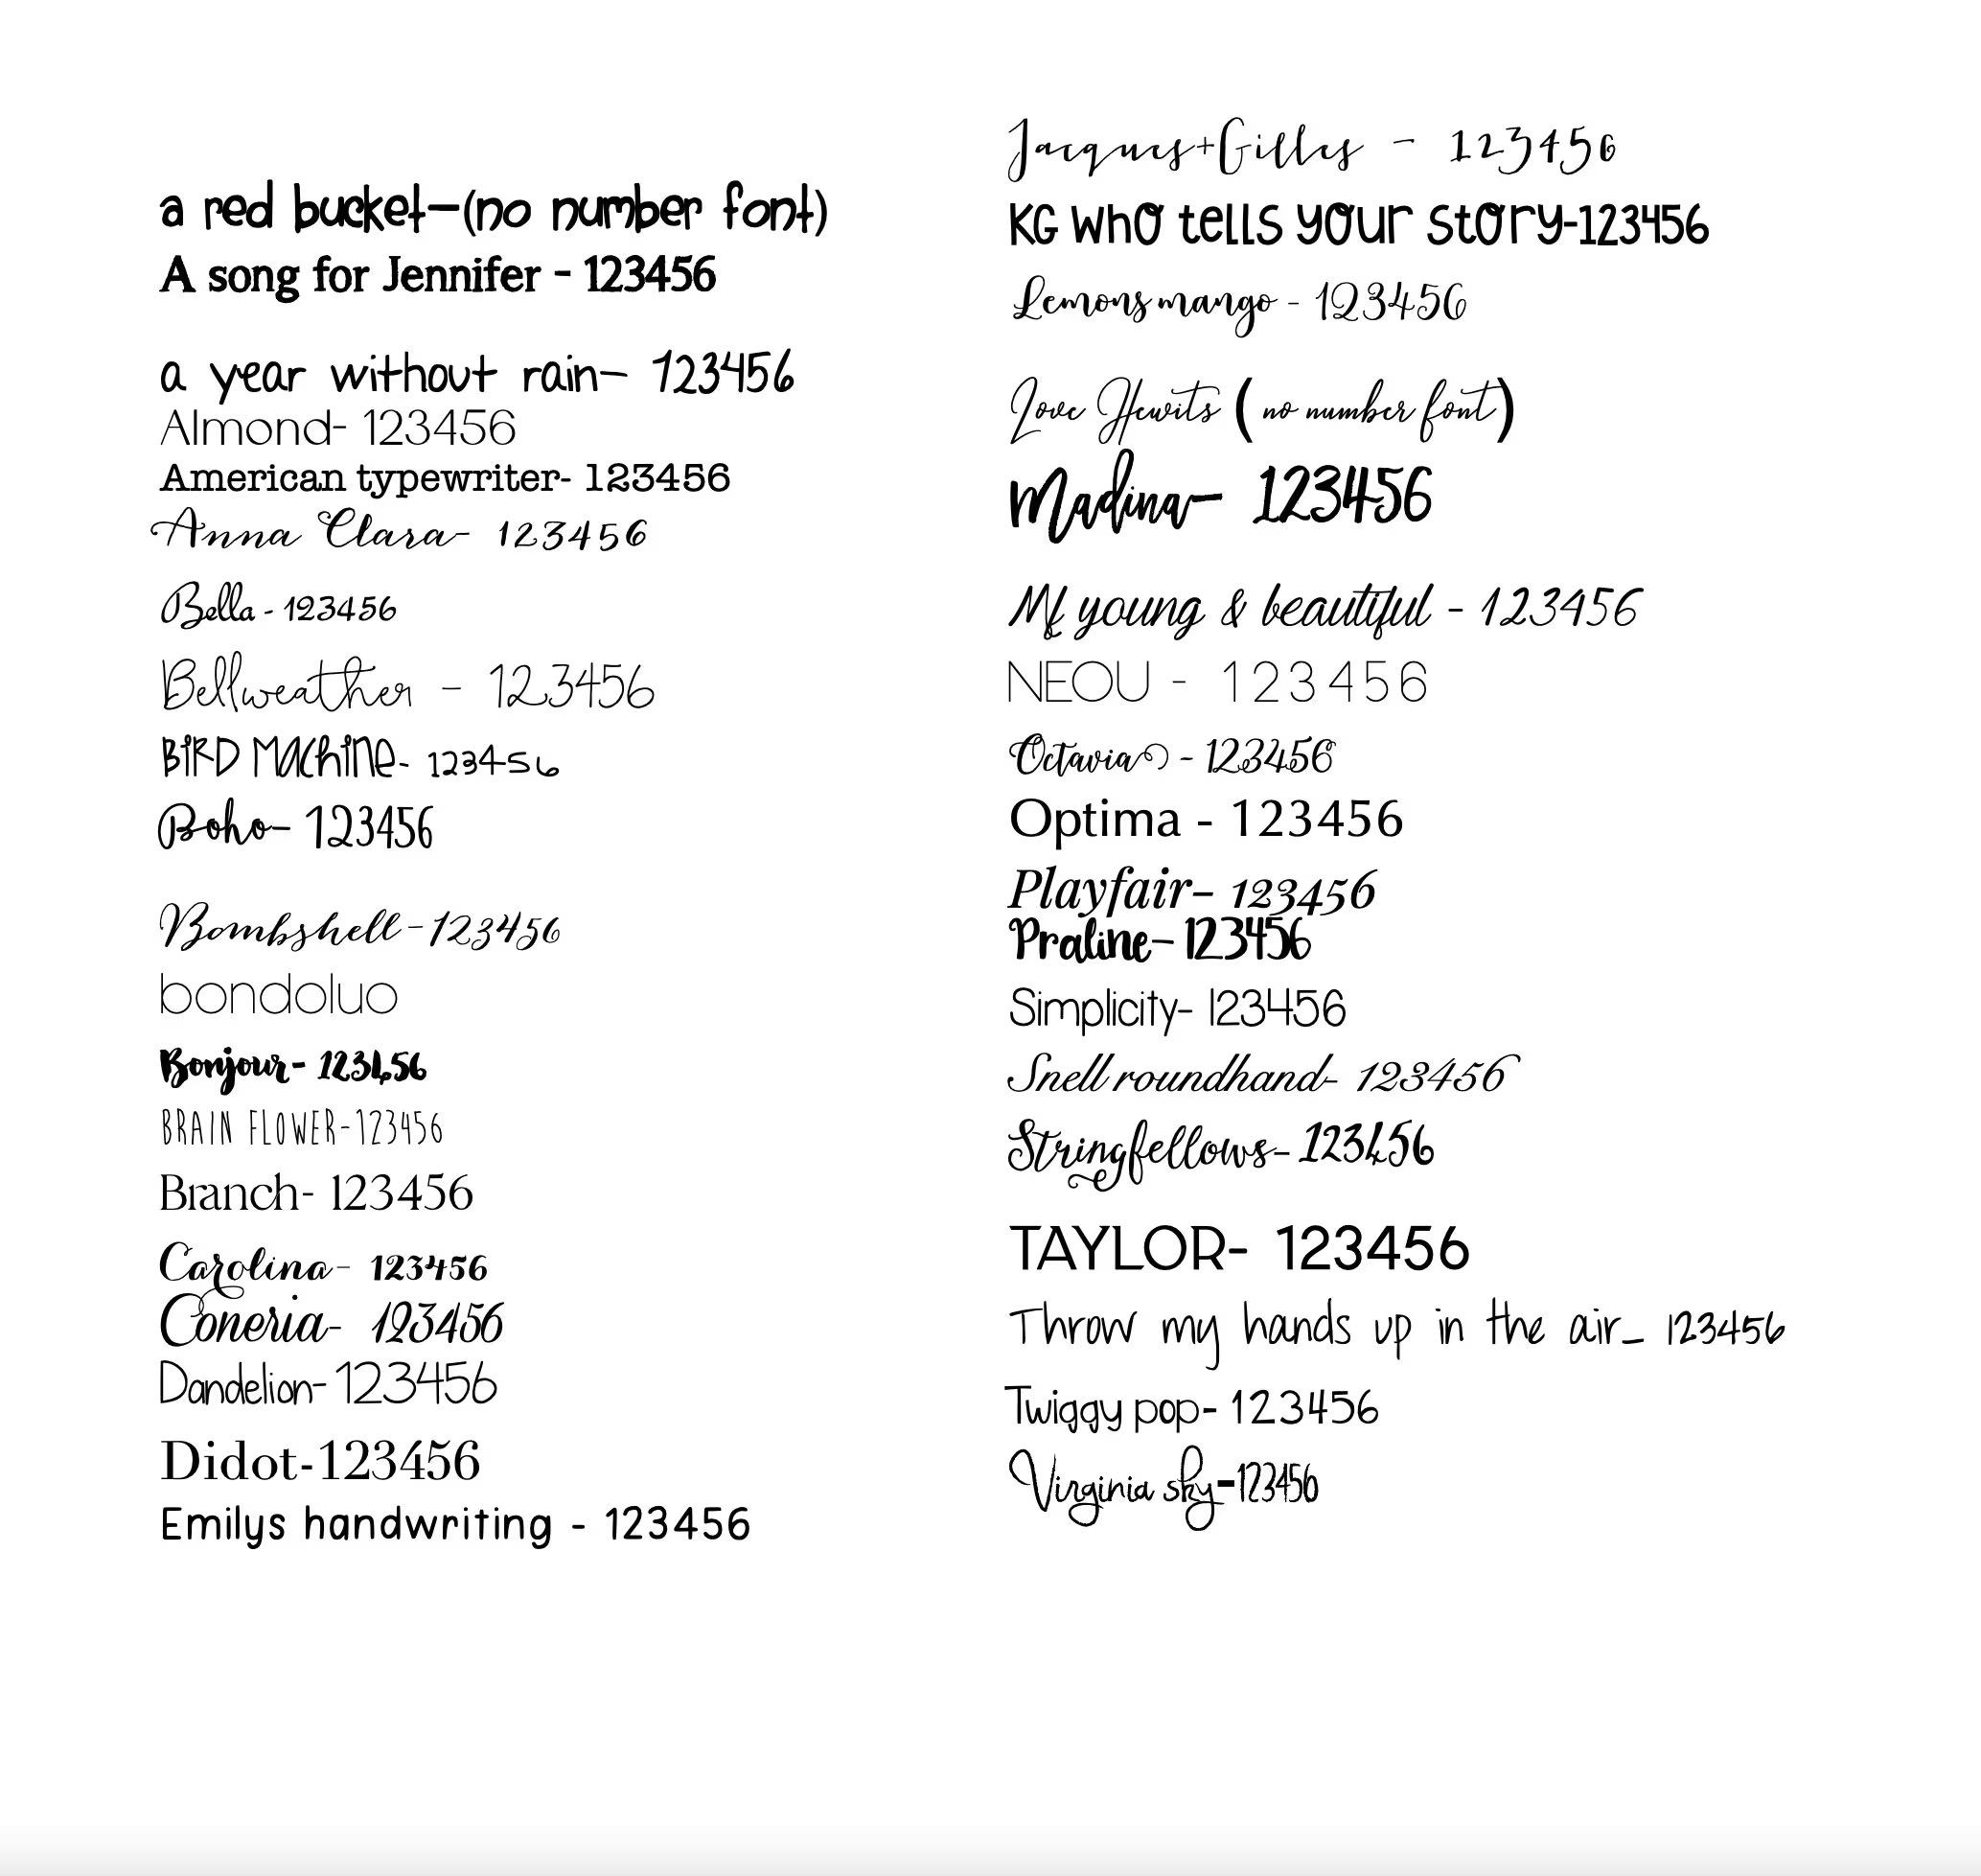 a red bucket-(no number font)
A song for Jennifer - 123456
a year without rain- 123456
Almond- 123456
American typewriter- 123456
Anna Clara- 123456
Bella - 123456
Bellweather - 123456
BiRD MAchiNe- 123456
Boho- 123456
Bombshell-123456
bondoluo
Bonjour- 123456
BRAIN FLOWER-123456
Branch- 123456
Carolina- 123456
Coneria- 123456
Dandelion-123456
Didot-123456
Emilys handwriting - 123456
Jacques+Gilles - 123456
KG who tells your story-123456
Lemons mango - 123456
Love Hewits (no number font)
Madina- 123456
Mf young & beautiful - 123456
NEOU - 123456
Octavia - 123456
Optima - 123456
Playfair- 123456
Praline- 123456
Simplicity- 123456
Snell roundhand- 123456
Stringfellows- 123456
TAYLOR- 123456
Throw my hands up in the air_ 123456
Twiggy pop- 123456
Virginia sky-123456